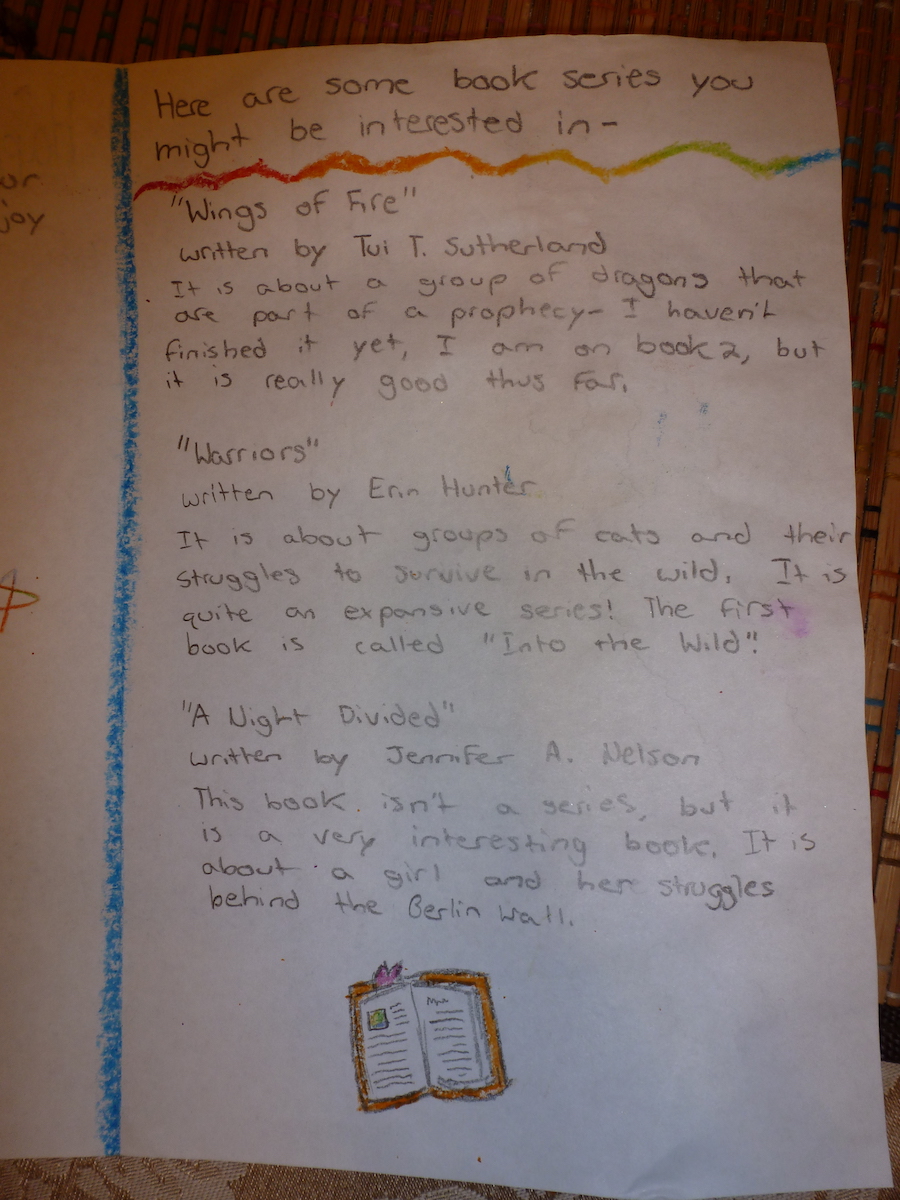 ur
joy
Here are some book series you
might be interested in-
"Wings of Fire"
written by Tui T. Sutherland
It is about a group of dragons that
are part of a prophecy- I haven't
finished it yet, I am on book 2, but
it is really good thus far.
"Warriors"
written by Erin Hunter
It is about groups of cats and their
struggles to survive in the wild. It is
quite an expansive series! The first
book is called "Into the Wild".
"A Night Divided"
written by Jennifer A. Nelson
This book isn't a series, but it
is a very interesting book. It is
about a girl and her struggles
behind the Berlin Wall.